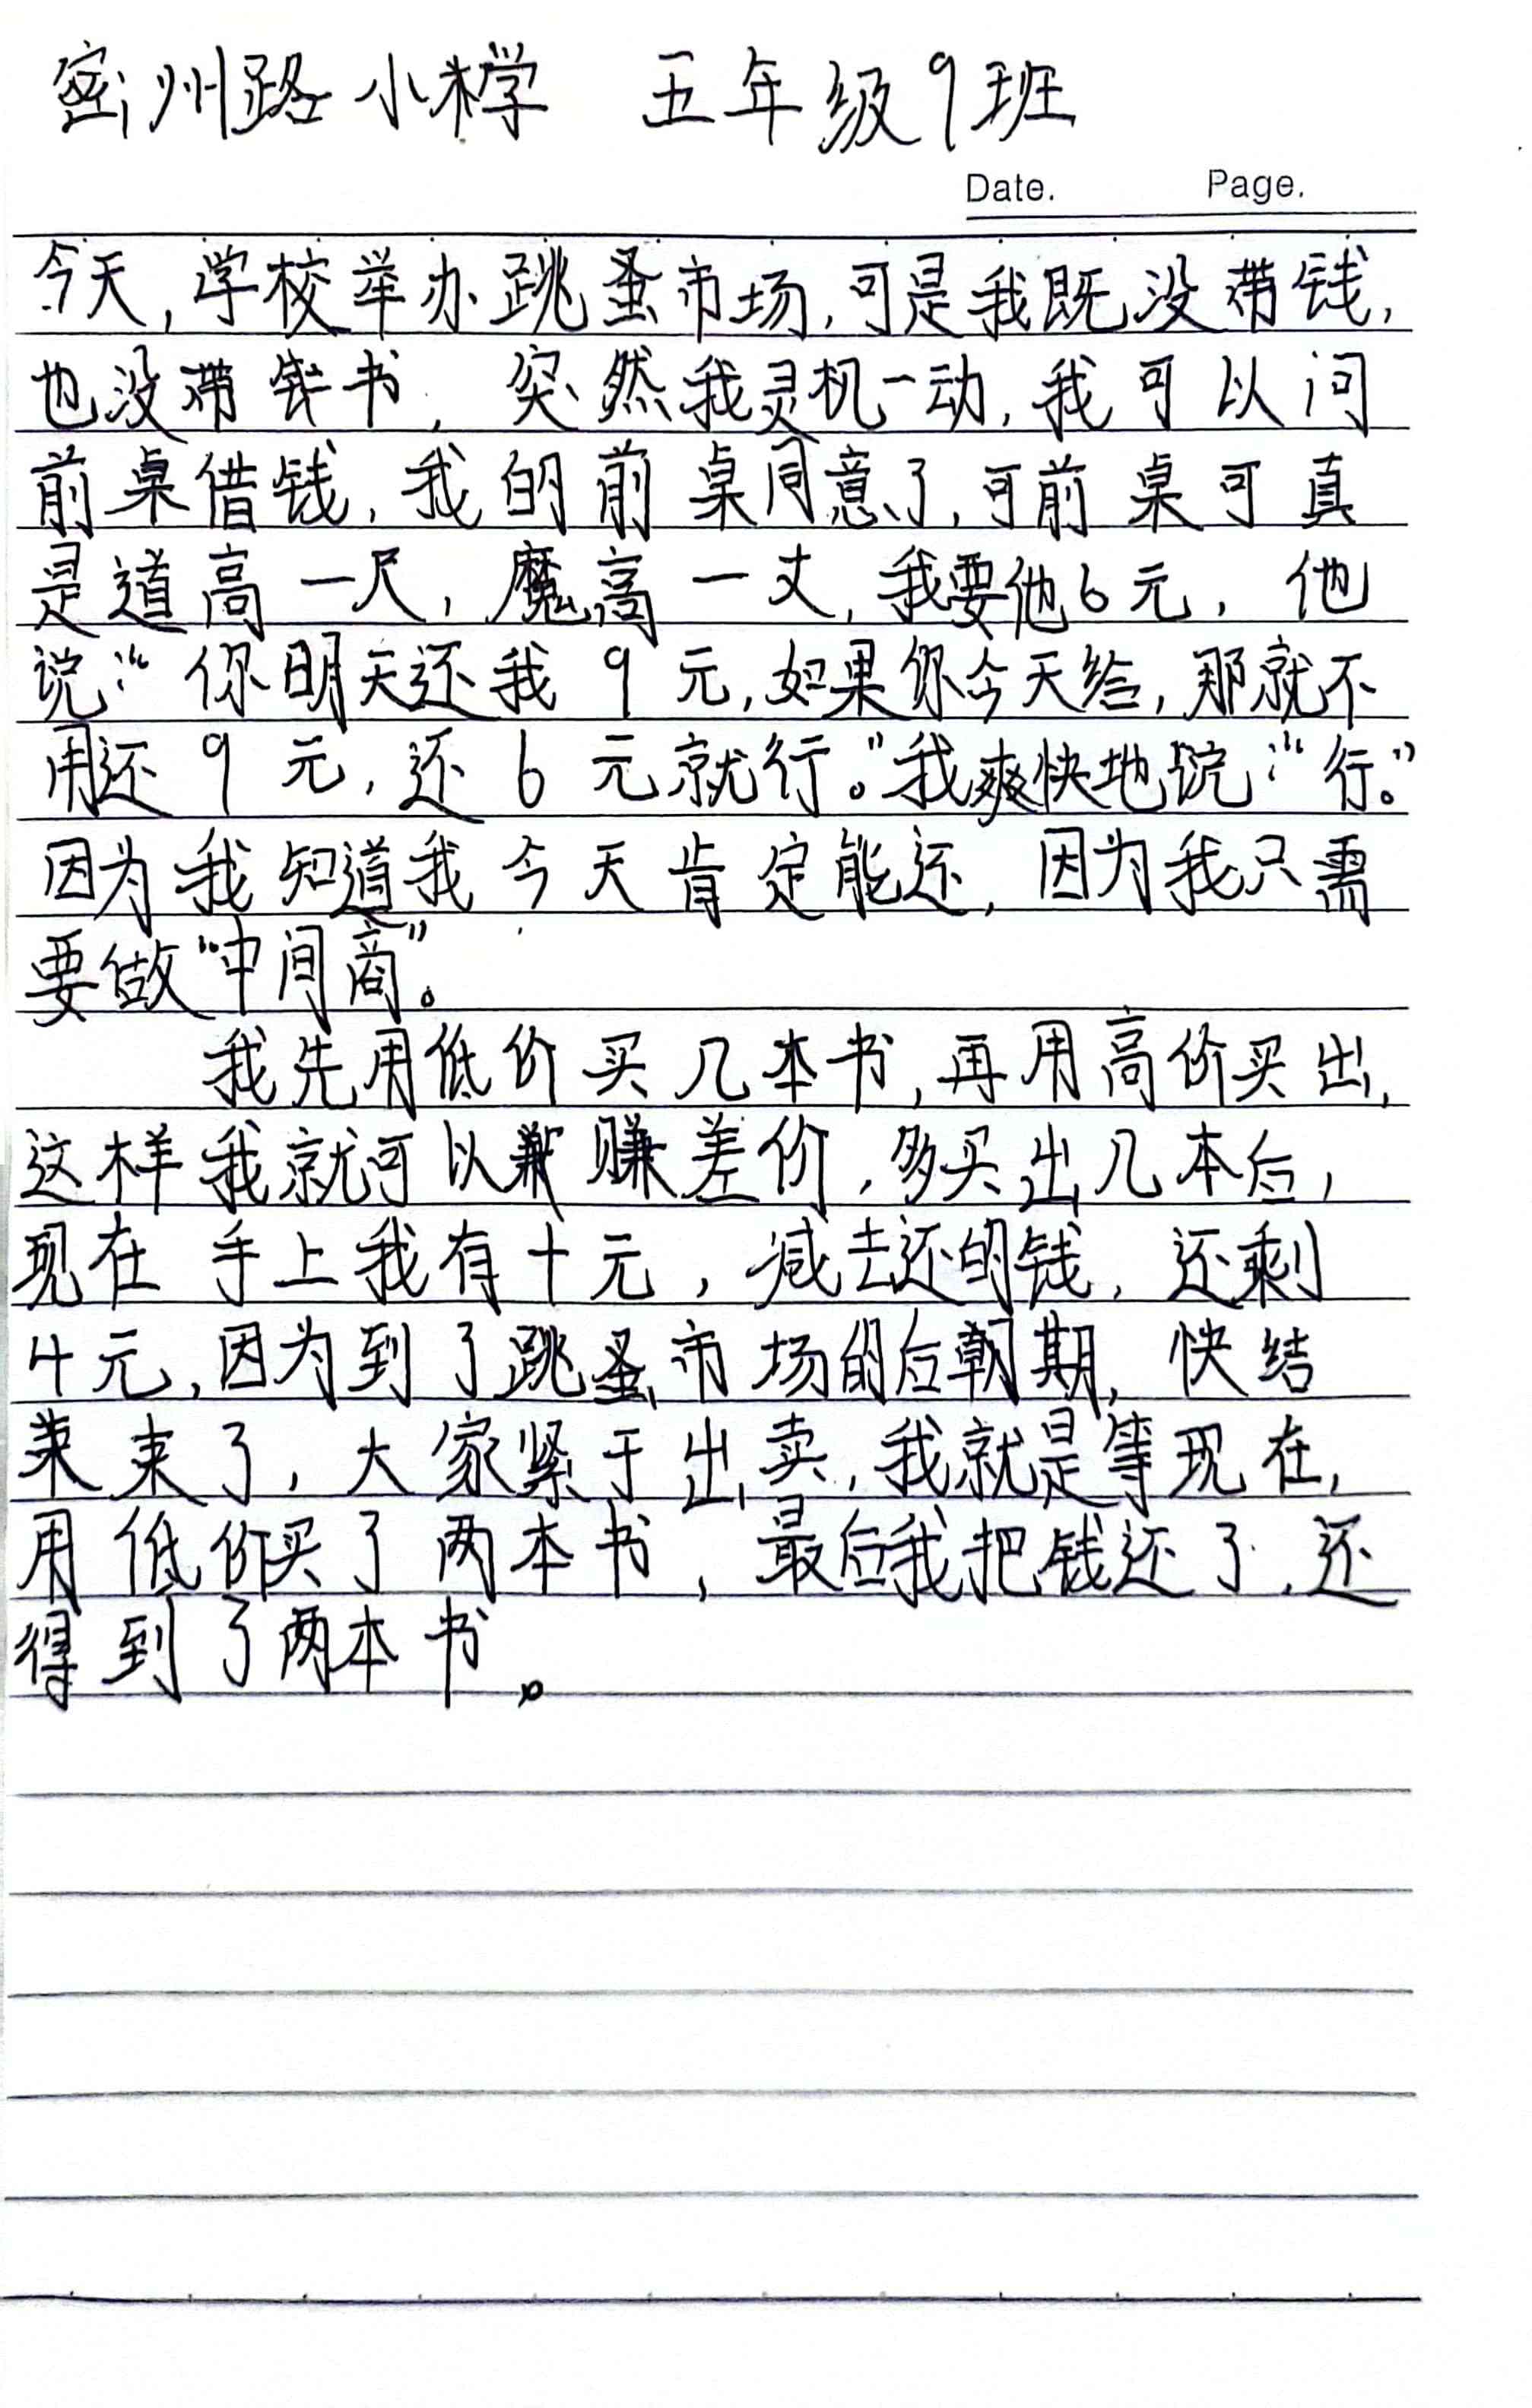 密州路小学 五年级9班
Date. Page.
今天,学校举办跳蚤市场,可是我既没带钱,
也没带书,突然我灵机一动,我可以问
前桌借钱,我的前桌同意了,可前桌可真
是道高一尺,魔高一丈,我要他6元,他
说:“你明天还我9元,如果你今天给,那就不
用还9元,还6元就行。”我爽快地说:“行。”
因为我知道我今天肯定能还,因为我只需
要做“中间商”。
我先用低价买几本书,再用高价买出,
这样我就可以赚差价,多买出几本后,
现在手上我有十元,减去还的钱,还剩
4元,因为到了跳蚤市场的后期,快结
束了,大家紧于出卖,我就是等现在,
用低价买了两本书,最后我把钱还了,还
得到了两本书。